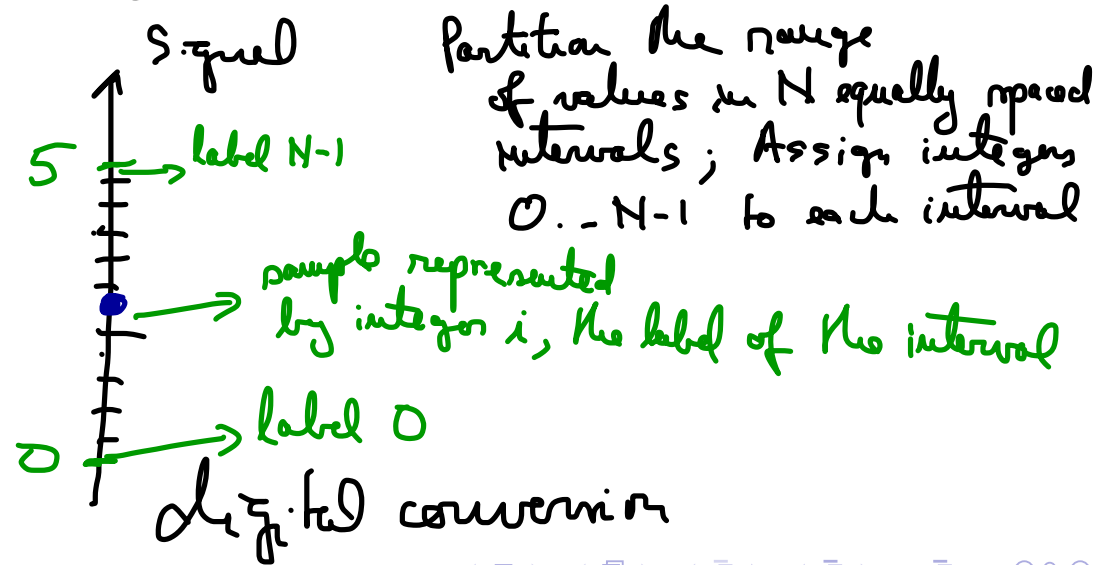 Signal
Partition the range
of values in N equally spaced
intervals; Assign integers
0..N-1 to each interval
5
label N-1
sample represented
by integer i, the label of the interval
label 0
0
digital conversion